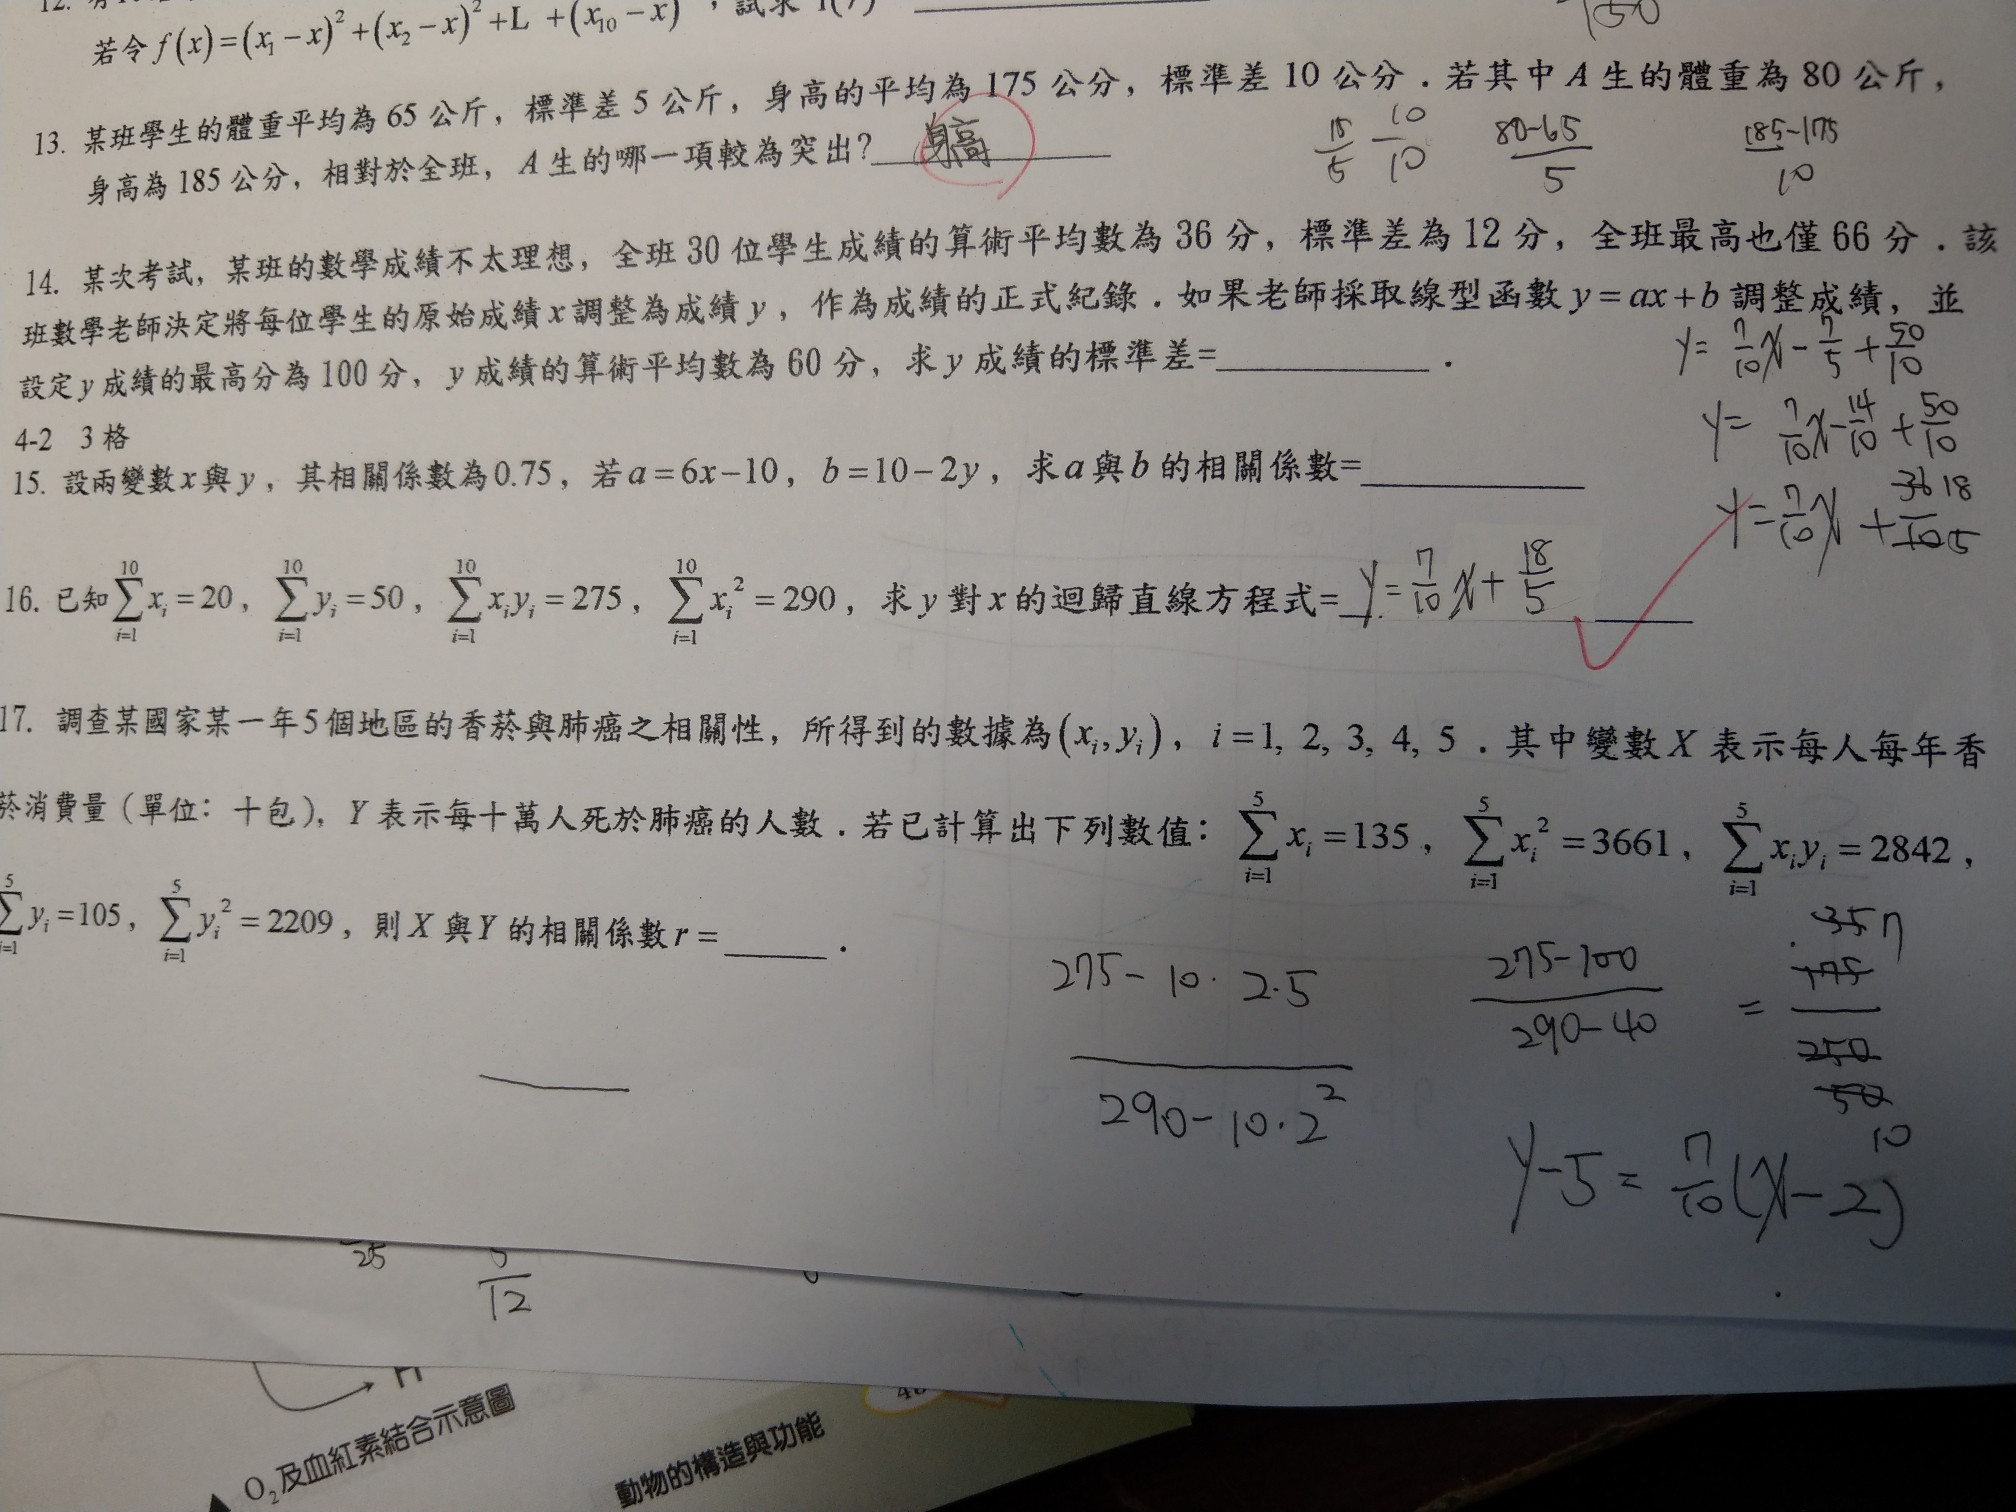 若令 f(x)=(x₁−x)²+(x₂−x)²+L +(x₁₀−x)
13. 某班學生的體重平均為 65 公斤，標準差 5 公斤，身高的平均為 175 公分，標準差 10 公分．若其中 A 生的體重為 80 公斤，
身高為 185 公分，相對於全班，A 生的哪一項較為突出？ 身高
15/5 10/10 (80-65)/5 (185-175)/10
14. 某次考試，某班的數學成績不太理想，全班 30 位學生成績的算術平均數為 36 分，標準差為 12 分，全班最高也僅 66 分．該
班數學老師決定將每位學生的原始成績 x 調整為成績 y，作為成績的正式紀錄．如果老師採取線型函數 y=ax+b 調整成績，並
設定 y 成績的最高分為 100 分，y 成績的算術平均數為 60 分，求 y 成績的標準差=________．
y= 7/10 x - 7/5 + 50/10
y= 7/10 x - 14/10 + 50/10
y= 7/10 x + 36/10 18/5
4-2 3 格
15. 設兩變數 x 與 y，其相關係數為 0.75，若 a=6x−10，b=10−2y，求 a 與 b 的相關係數=________
16. 已知 ∑_{i=1}^{10} x_i =20，∑_{i=1}^{10} y_i =50，∑_{i=1}^{10} x_i y_i =275，∑_{i=1}^{10} x_i² =290，求 y 對 x 的迴歸直線方程式= y= 7/10 x + 18/5
17. 調查某國家某一年 5 個地區的香菸與肺癌之相關性，所得到的數據為(x_i, y_i)，i=1, 2, 3, 4, 5．其中變數 X 表示每人每年香
菸消費量（單位：十包），Y 表示每十萬人死於肺癌的人數．若已計算出下列數值：∑_{i=1}^{5} x_i =135，∑_{i=1}^{5} x_i² =3661，∑_{i=1}^{5} x_i y_i =2842，
∑_{i=1}^{5} y_i =105，∑_{i=1}^{5} y_i² =2209，則 X 與 Y 的相關係數 r =____．
275-10·2·5
290-10·2²
275-100
290-40
=
35 7
175
250
50
10
y-5= 7/10 (x-2)
25
12
O₂及血紅素結合示意圖
動物的構造與功能